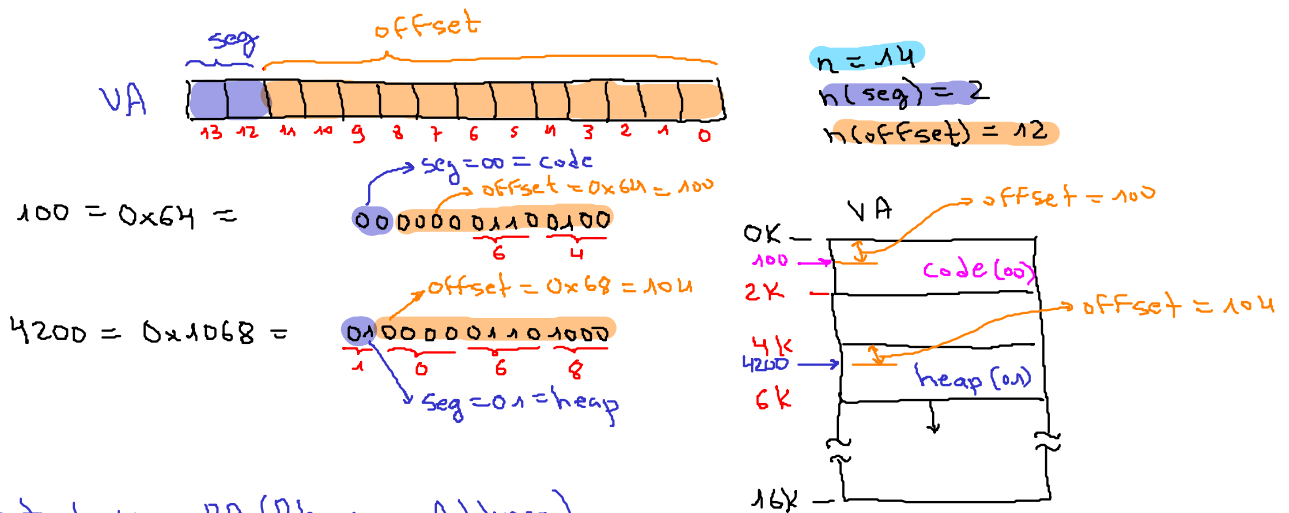 seg
offset
VA
13 12 11 10 9 8 7 6 5 4 3 2 1 0
n = 14
n(seg) = 2
n(offset) = 12
seg=00 = code
offset = 0x64 = 100
100 = 0x64 = 00 0000 0110 0100
6 4
offset = 0x68 = 104
4200 = 0x1068 = 01 0000 0110 1000
1 0 6 8
seg=01=heap
VA
offset = 100
0K
100
code(00)
2K
offset = 104
4K
4200
heap(01)
6K
16K